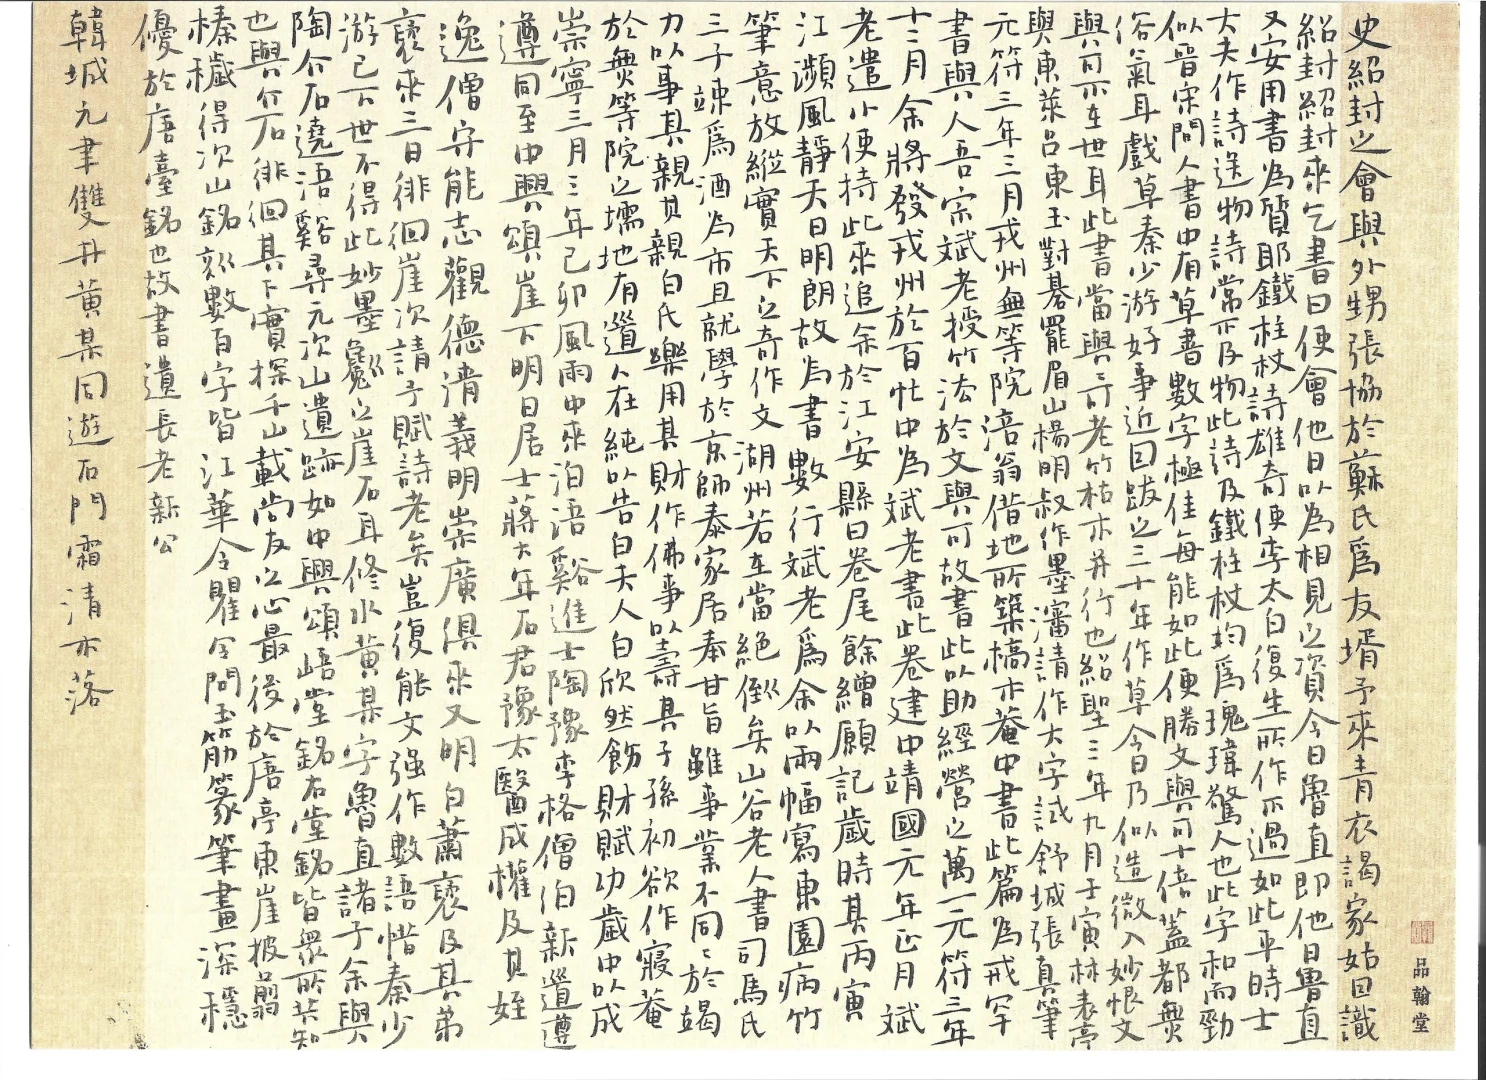 史紹封之會與外甥張協於蘇氏爲友壻予來青衣謁家姑因識
紹封紹封來乞書曰便會他日以為相見之資今日魯直即他日魯直
又安用書為質耶鐵柱杖詩雄奇使李太白復生所作不過如此平時士
大夫作詩送物詩常不及物此詩及鐵柱杖均爲瑰瑋驚人也此字和而勁
似晋宋間人書中有草書數字極佳每能如此便勝文與可十倍蓋都無
俗氣耳戲草秦少游好事近因跋之三十年作草今日乃似造微入妙恨文
與可不在世耳此書當與與可老竹枯木并行也紹聖三年九月壬寅林表亭
與東萊呂東玉對碁罷眉山楊明叔作墨瀋請作大字試舒城張真筆
元符三年三月戎州無等院涪翁借地所築槁木菴中書此篇為戒罕
書與人吾宗斌老授竹法於文與可故書此以助經營之萬一元符三年
十二月余將發戎州於百忙中為斌老書此卷建中靖國元年正月斌
老遣小使持此來追余於江安縣曰卷尾餘繒願記歲時其丙寅
江瀕風靜天日明朗故為書數行斌老爲余以兩幅寫東園病竹
筆意放縱實天下之奇作文湖州若在當絕倒矣山谷老人書司馬氏
三子竦爲酒為市且就學於京師泰家居奉甘旨雖事業不同〻於竭
力以事其親其親白氏樂用其財作佛事以壽其子孫初欲作寢菴
於無等院之壖地有道人在純以告白夫人白欣然飭財賦功歲中以成
崇寧三月三年己卯風雨中來泊浯谿進士陶豫李格僧伯新道遵
遵同至中興頌崖下明日居士蔣大年石君豫太醫成權及其姪
逸僧守能志觀德清義明崇廣俱來又明日蕭褒及其弟
褒來三日徘徊崖次請予賦詩老矣豈復能文强作數語惜秦少
游已下世不得此妙墨劖之崖石耳修水黄某字魯直諸子余與
陶介石遶浯谿尋元次山遺跡如中興頌峿堂銘右堂銘皆衆所共知
也與介石徘徊其下實探千山載尚友之心最後於唐亭東崖披翦
榛穢得次山銘刻數百字皆江華令瞿令問玉筯篆筆畫深穩
優於唐臺銘也故書遺長老新公
韓城元聿雙井黄某同遊石門霜清木落
品翰堂